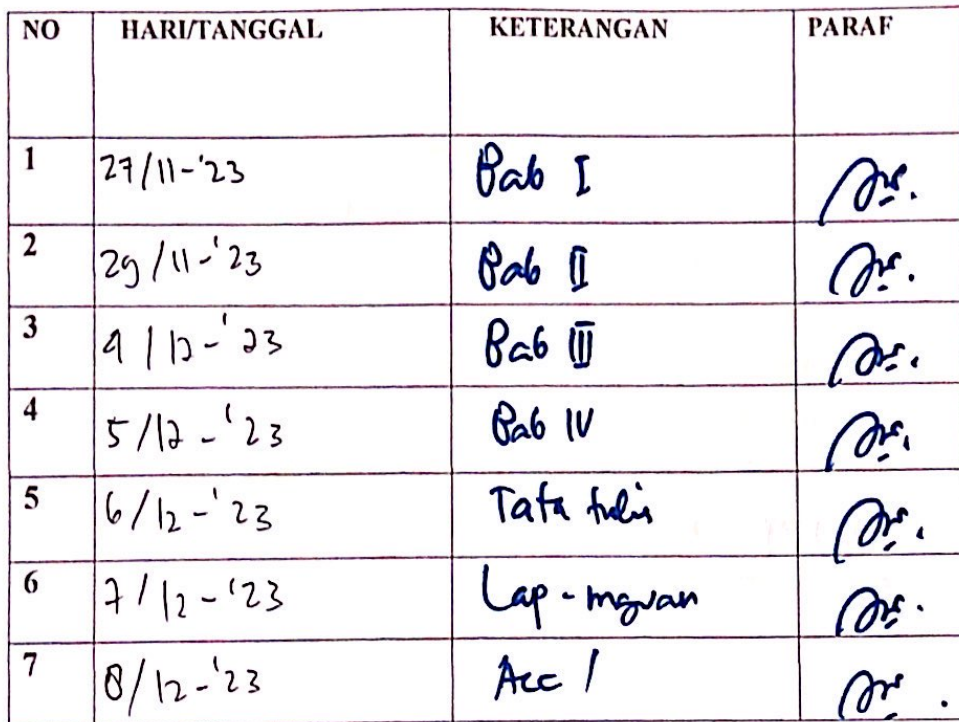 NO HARI/TANGGAL KETERANGAN PARAF
1 27/11-'23 Bab I
2 29/11-'23 Bab II
3 4/12-'23 Bab III
4 5/12-'23 Bab IV
5 6/12-'23 Tata tulis
6 7/12-'23 Lap-
7 8/12-'23 Acc